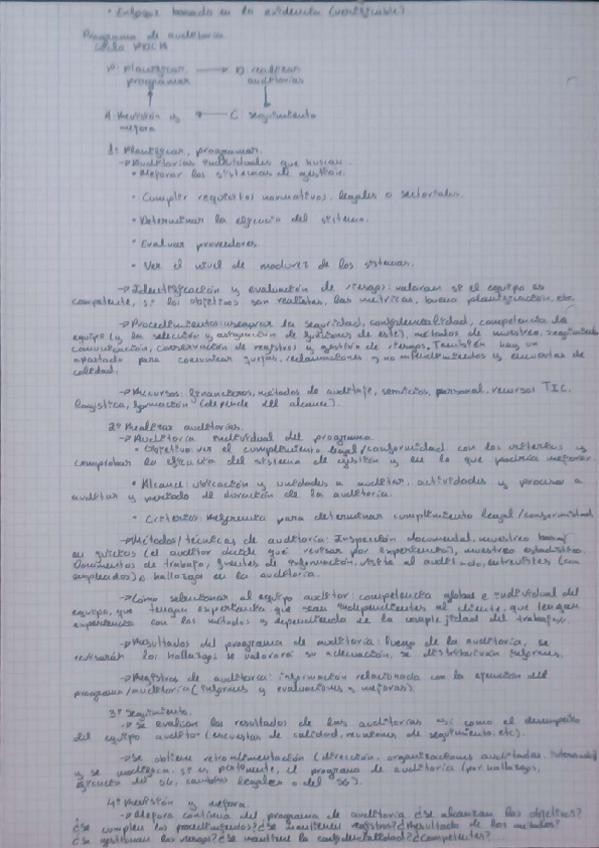 • Enfoque basado en la evidencia (verificable)
Programa de auditoría
Ciclo PDCA
P: planificar, → D: realizar
programar auditorías
A: Revisión y ← C: seguimiento
mejora
1º Planificar, programar.
→ Auditorías individuales que buscan:
• Mejorar los sistemas de gestión.
• Cumplir requisitos normativos, legales o sectoriales.
• Determinar la eficacia del sistema.
• Evaluar proveedores.
• Ver el nivel de madurez de los sistemas.
→ Identificación y evaluación de riesgos: valoran si el equipo es
competente, si los objetivos son realistas, las métricas, buena planificación, etc.
→ Procedimientos: asegurar la seguridad, confidencialidad, competencia del
equipo (y la selección y asignación de funciones de este), métodos de muestreo, seguimiento
comunicación, conservación de registros y gestión de riesgos. También hay un
apartado para comunicar quejas, reclamaciones y no y encuestas de
calidad.
→ Recursos: financieros, métodos de auditoría, servicios, personal, recursos TIC,
logística, formación (depende del alcance).
2º Realizar auditorías.
→ Auditoría individual del programa
• Objetivo: ver el cumplimiento legal/conformidad con los criterios y
comprobar la eficacia del sistema de gestión y en lo que podría mejorar.
• Alcance: ubicación y unidades a auditar, actividades y procesos a
auditar y período de duración de la auditoría.
• Criterios: Referencia para determinar cumplimiento legal/conformidad
→ Métodos/técnicas de auditoría: Inspección documental, muestreo basado
en juicios (el auditor decide qué revisar por experiencia), muestreo estadístico.
Documentos de trabajo, fuentes de información, visita al auditado, entrevistas (con
empleados) o hallazgos en la auditoría.
→ Cómo seleccionar al equipo auditor: competencia global e individual del
equipo, que tengan experiencia que sean independientes al cliente, que tengan
experiencia con los métodos y dependiendo de la complejidad del trabajo.
→ Resultados del programa de auditoría: luego de la auditoría, se
revisarán los hallazgos se valorará su adecuación, se distribuirán informes.
→ Registros de auditoría: información relacionada con la ejecución del
programa/auditoría (informes y evaluaciones y mejoras).
3º Seguimiento.
→ Se evalúan los resultados de las auditorías así como el desempeño
del equipo auditor (encuestas de calidad, reuniones de seguimiento, etc).
→ Se obtiene retroalimentación (dirección, organizaciones auditadas,
y se modifica, si es pertinente, el programa de auditoría (por hallazgos,
eficacia del SG, cambios legales o del SG).
4º Revisión y mejora.
→ Mejora continua del programa de auditoría ¿Se alcanzan los objetivos?
¿Se cumplen los procedimientos? ¿Se mantienen registros? ¿Resultado de los métodos?
¿Se gestionan los riesgos? ¿Se mantiene la confidencialidad? ¿Competentes?...